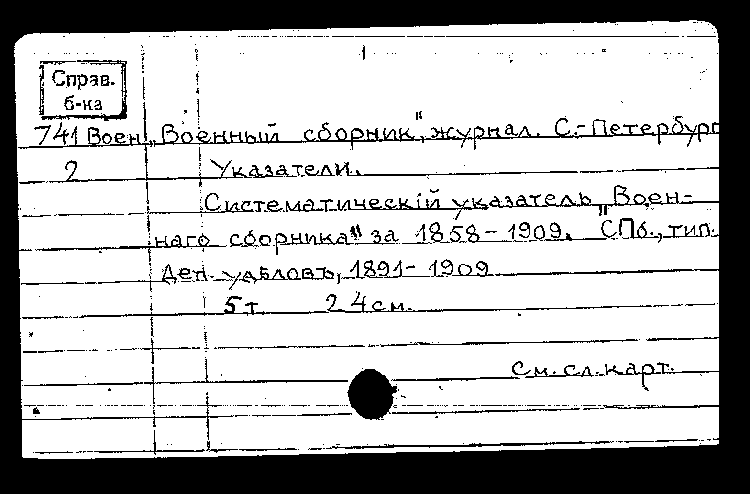 Справ.
б-ка
741 Воен. „Военный сборник“, журнал. С.-Петербург
2 Указатели.
Систематическій указатель „Воен-
наго сборника“ за 1858-1909. СПб., тип.
Деп. удѣловъ, 1891-1909
5 т. 24 см.
См. сл. карт.